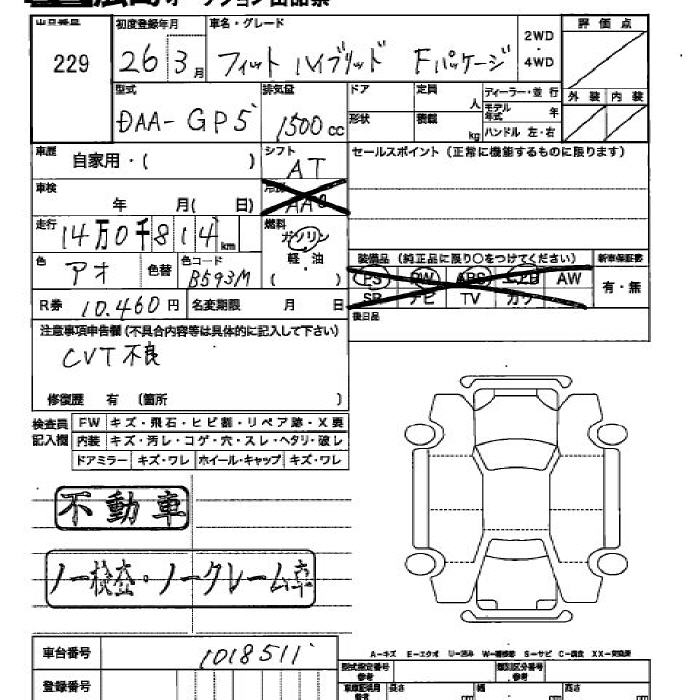 出品番号 初度登録年月 車名・グレード 2WD・4WD 評価点
229 26 3月 フィット ハイブリッド Fパッケージ
型式 排気量 ドア 定員 人 ディーラー・並行 外装 内装
DAA-GP5 1500cc 形状 積載 kg モデル年式 年 ハンドル 左・右
車歴 自家用・( ) シフト AT セールスポイント(正常に機能するものに限ります)
車検 年 月( 日) 冷房 AAC
走行 14万0千814km 燃料 ガソリン 軽・油 ( )
装備品(純正品に限り○をつけてください) 新車保証書
色 アオ 色替 色コード B593M PS PW ABS エアB AW 有・無
SR ナビ TV カワ
R券 10.460円 名変期限 月 日 後日品
注意事項申告欄(不具合内容等は具体的に記入して下さい)
CVT不良
修復歴 有 (箇所 )
検査員記入欄 FW キズ・飛石・ヒビ割・リペア跡・X要
内装 キズ・汚レ・コゲ・穴・スレ・ヘタリ・破レ
ドアミラー キズ・ワレ ホイール・キャップ キズ・ワレ
不動車
ノー検査・ノークレーム車
A-キズ E-エクボ U-凹み W-補修跡 S-サビ C-腐食 XX-交換済
車台番号 1018511 型式指定番号 類別区分番号
登録番号 長さ 幅 高さ